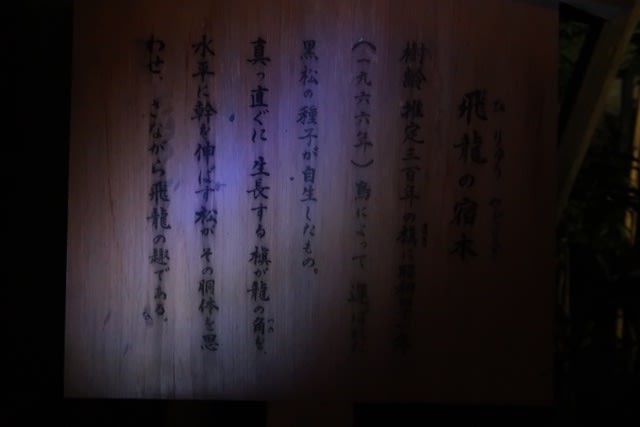 飛龍の宿木
ひりゅう のやどりぎ
樹齢推定三百年の槇に昭和四十一年
(一九六六年)鳥によって運ばれた
黒松の種子が自生したもの。
真っ直ぐに生長する槇が龍の角を、
水平に幹を伸ばす松がその胴体を思
わせ、さながら飛龍の趣である。